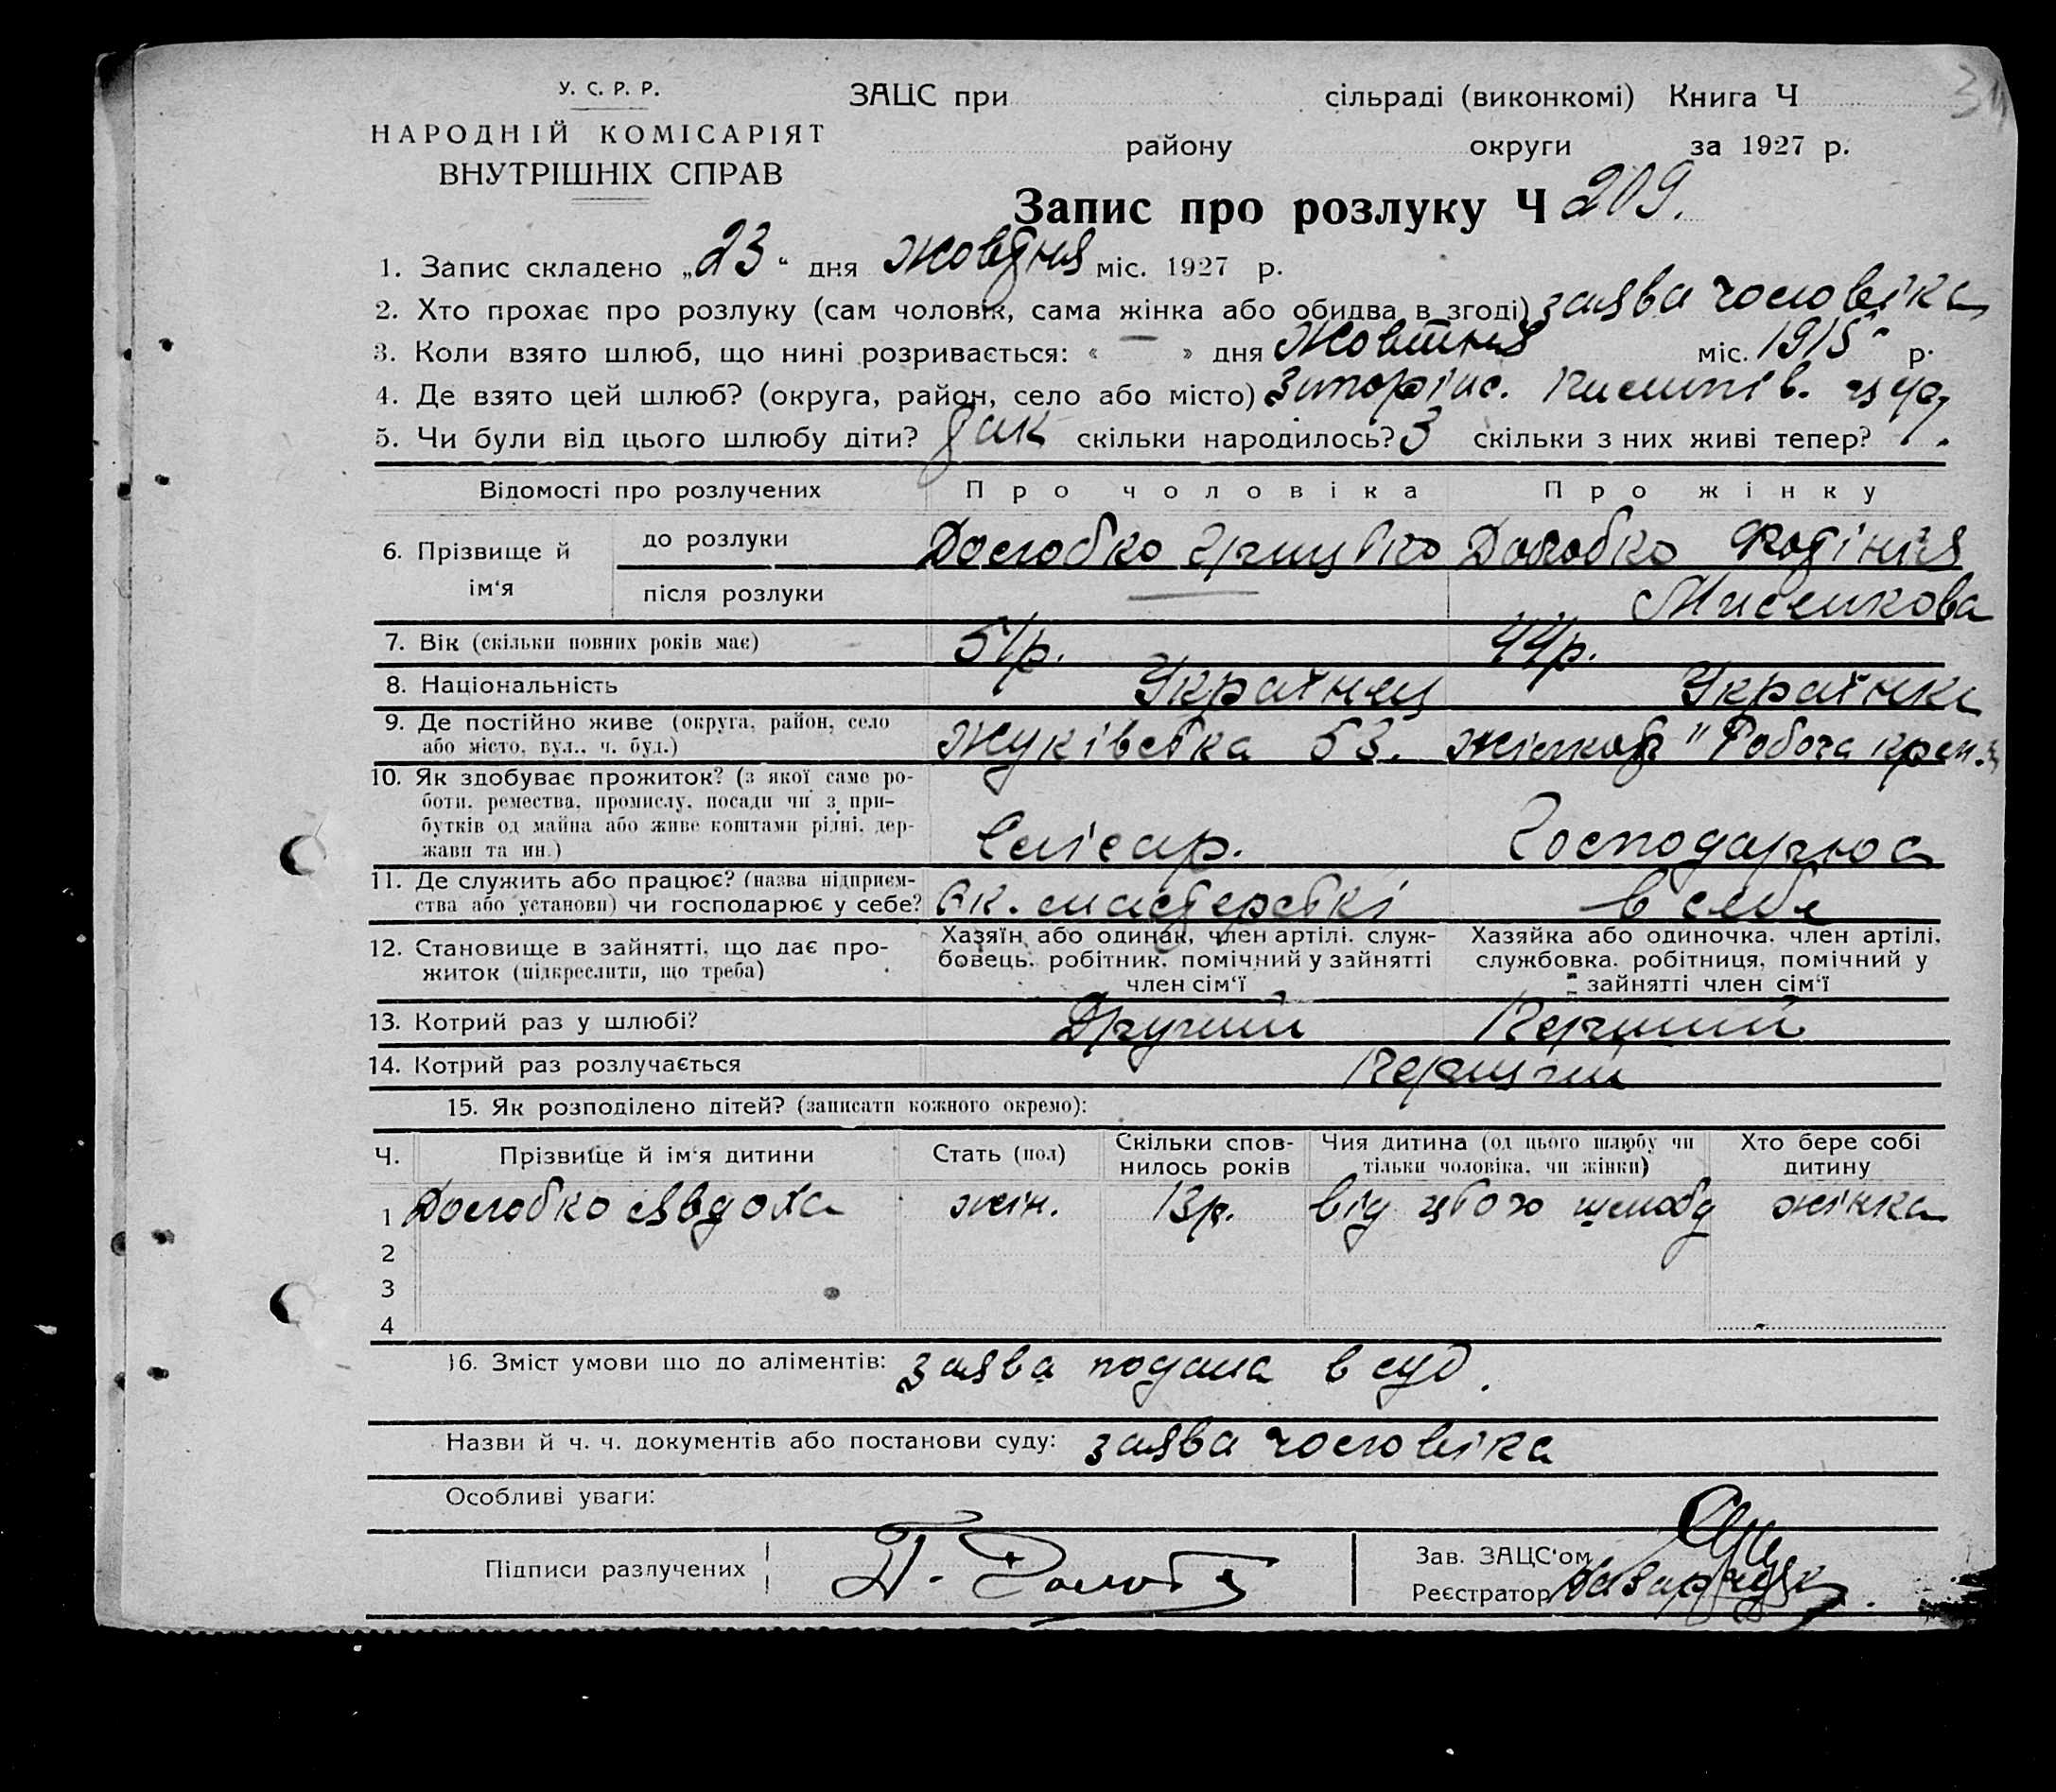 У. С. Р. Р.
НАРОДНІЙ КОМІСАРІЯТ
ВНУТРІШНІХ СПРАВ
ЗАЦС при сільраді (виконкомі) Книга Ч
району округи за 1927 р.
Запис про розлуку Ч 209.
1. Запис складено „23“ дня жовтня міс. 1927 р.
2. Хто прохає про розлуку (сам чоловік, сама жінка або обидва в згоді) заява чоловіка
3. Коли взято шлюб, що нині розривається: « — » дня Жовтня міс. 1915 р.
4. Де взято цей шлюб? (округа, район, село або місто)
5. Чи були від цього шлюбу діти? так скільки народилось? 3 скільки з них живі тепер? 1.
Відомості про розлучених Про чоловіка Про жінку
6. Прізвище й ім‘я
до розлуки Долобко Долобко
після розлуки
7. Вік (скільки повних років має) 51р. 44р.
8. Національність Українец Українка
9. Де постійно живе (округа, район, село або місто, вул., ч. буд.) 53. "Робоча
10. Як здобуває прожиток? (з якої саме ро-
боти, ремества, промислу, посади чи з при-
бутків од майна або живе коштами рідні, дер-
жави та ин.) Слісар.
11. Де служить або працює? (назва підприєм-
ства або установи) чи господарює у себе? в себе
12. Становище в зайнятті, що дає про-
житок (підкреслити, що треба)
Хазяїн або одинак, член артілі, служ-
бовець, робітник, помічний у зайнятті
член сім‘ї
Хазяйка або одиночка, член артілі,
службовка, робітниця, помічний у
зайнятті член сім‘ї
13. Котрий раз у шлюбі? Другий Перший
14. Котрий раз розлучається Перший
15. Як розподілено дітей? (записати кожного окремо):
Ч. Прізвище й ім‘я дитини Стать (пол) Скільки спов-
нилось років Чия дитина (од цього шлюбу чи
тільки чоловіка, чи жінки) Хто бере собі
дитину
1 Долобко Явдоха жін. 13р. від цього шлюбу жінка
2
3
4
16. Зміст умови що до аліментів: заява подана в суд.
Назви й ч. ч. документів або постанови суду: заява чоловіка
Особливі уваги:
Підписи разлучених
Зав. ЗАЦС‘ом
Реєстратор